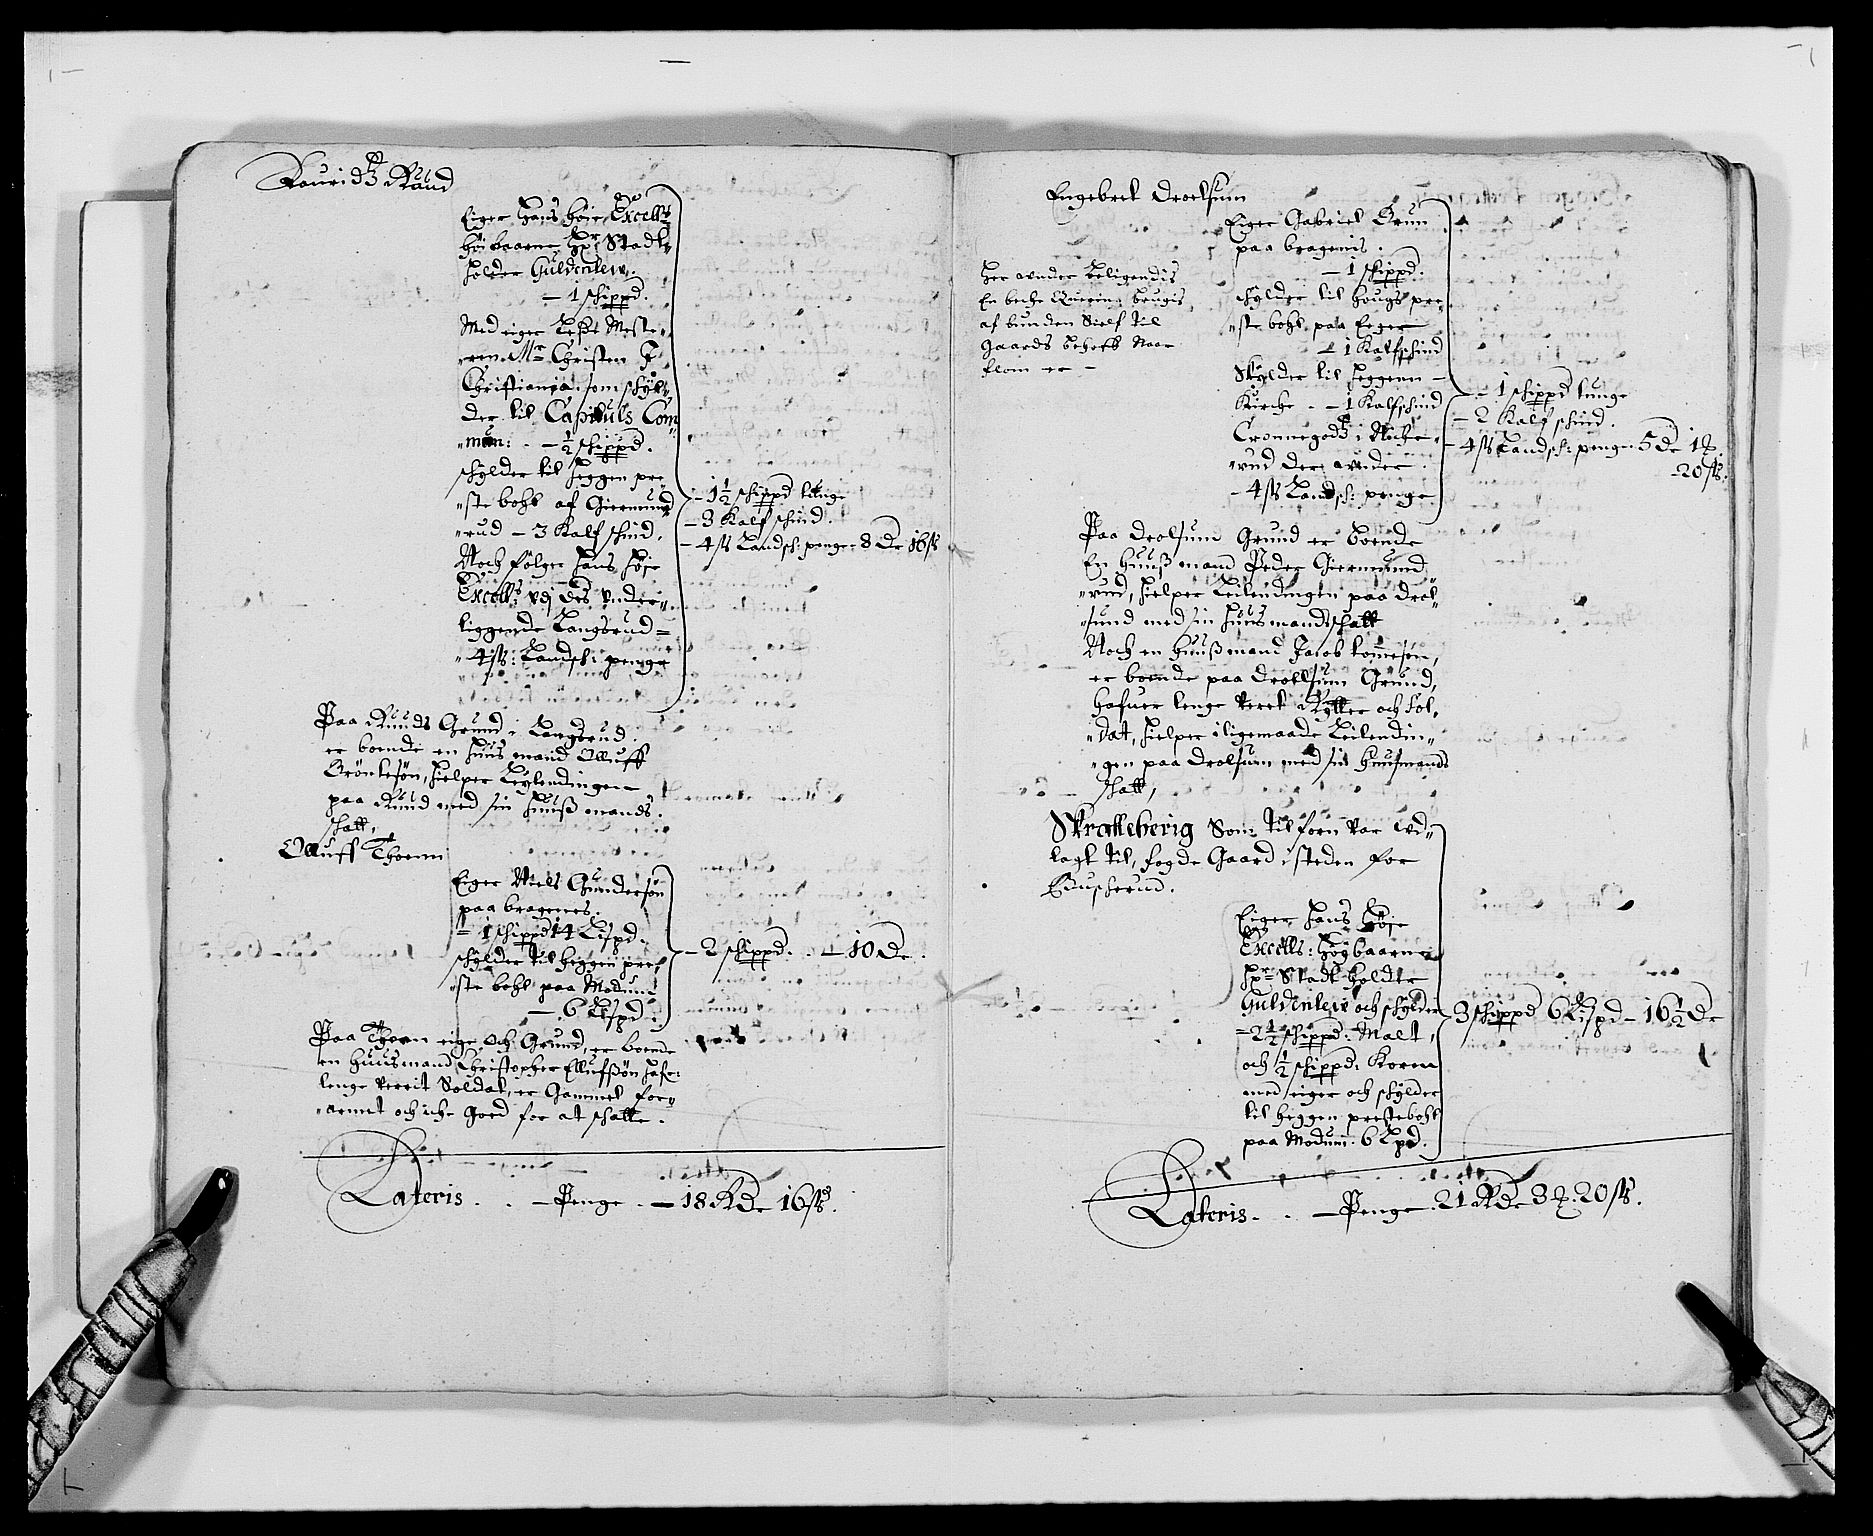 Lauridtz Ruud
Eiger Hans Höie Excellz
Höibaarne Hr Stadt-
holder Guldenlew.
- 1 schippd.
Med eiger Lest Meste-
ren Mr Christen J
Christiania. som schyl-
der til Capituls Com
mun: - ½ schippd.
schylder til Heggen pre-
ste bohl af Giermund
rud - 3 Kalfschind.
Noch følger Hans Höje
Excellz: vdj des vnder-
liggende Langerud =
4 ß: Landsch: penge
- 1½ schippd tunge
- 3 Kalfschind.
- 4 ß Landsch: penge - 8 Dr 16 ß
Paa Ruuds Grund i Langerud.
er boende en Huus mand Olluff
Grönlesøn, Hielper Leylendingen
paa Ruud med sin Huuß mands
schatt,
Olluff Thoenn
Eiger Niels Gundersøn
paa bragenes.
- 1 schippd 14 Lispd.
schylder til Heggen pre-
ste bohl paa Modum
- 6 Lispd.
- 2 schippd. - 10 Dr.
Paa Thoen eige och Grund, er boende
en Huusmand Christopher Ellufßøn Hafr
lenge verrit Soldat, er Gammel for-
armet och iche goed for at schatte.
Lateris - Penge - 18 Rdr 16 ß.
Engebret Droelsum
Her vnder beligendis
En beche Quern brugis
af bunden Sielf til
gaards behoff Naar
flom er -
Eiger Gabriel Brun
paa bragenis.
- 1 schippd.
schylder til Hougs pre-
ste bohl paa Eger
- 1 Kalfschind
Skylder til Heggenn -
Kirche - 1 Kalfschind
Cronnegodtz i
rud der vnder
- 4 ß Landsch: penge
- 1 schippd tunge
- 2 Kalfschind.
- 4 ß Landsch: penge 5 Dr 1 ℔
- 20 ß.
Paa Drolsum Grund er boende
En Huuß mand Peder Giermund-
rud, Hielper Leilendingen paa Drol-
sund med sin Huusmandschatt
Noch en Huuß mand Jacob tommesøn,
er boende paa Droelsum Grund,
hafuer lenge verit Rytter och Sol-
dat, Hielper iligemaade Leilendin-
gen paa Drolsum med sin Huusmands
schatt,
Skralleberig Som tilforn var ud-
lagt til, fogde Gaard i steden for
Eiger Hans Höje
Excells: Høybaarne
Hr Stadtholder
Guldenlew och schylder
- 2½ schippd: Malt,
och ½ schippd: Koren
med eiger och schylder
til Heggen prestebohl
paa Modum: 6 Lpd.
3 schippd 6 Lispd - 16½ Dr
Lateris - Penge 21 Rdr 3 ℔: 20 ß.